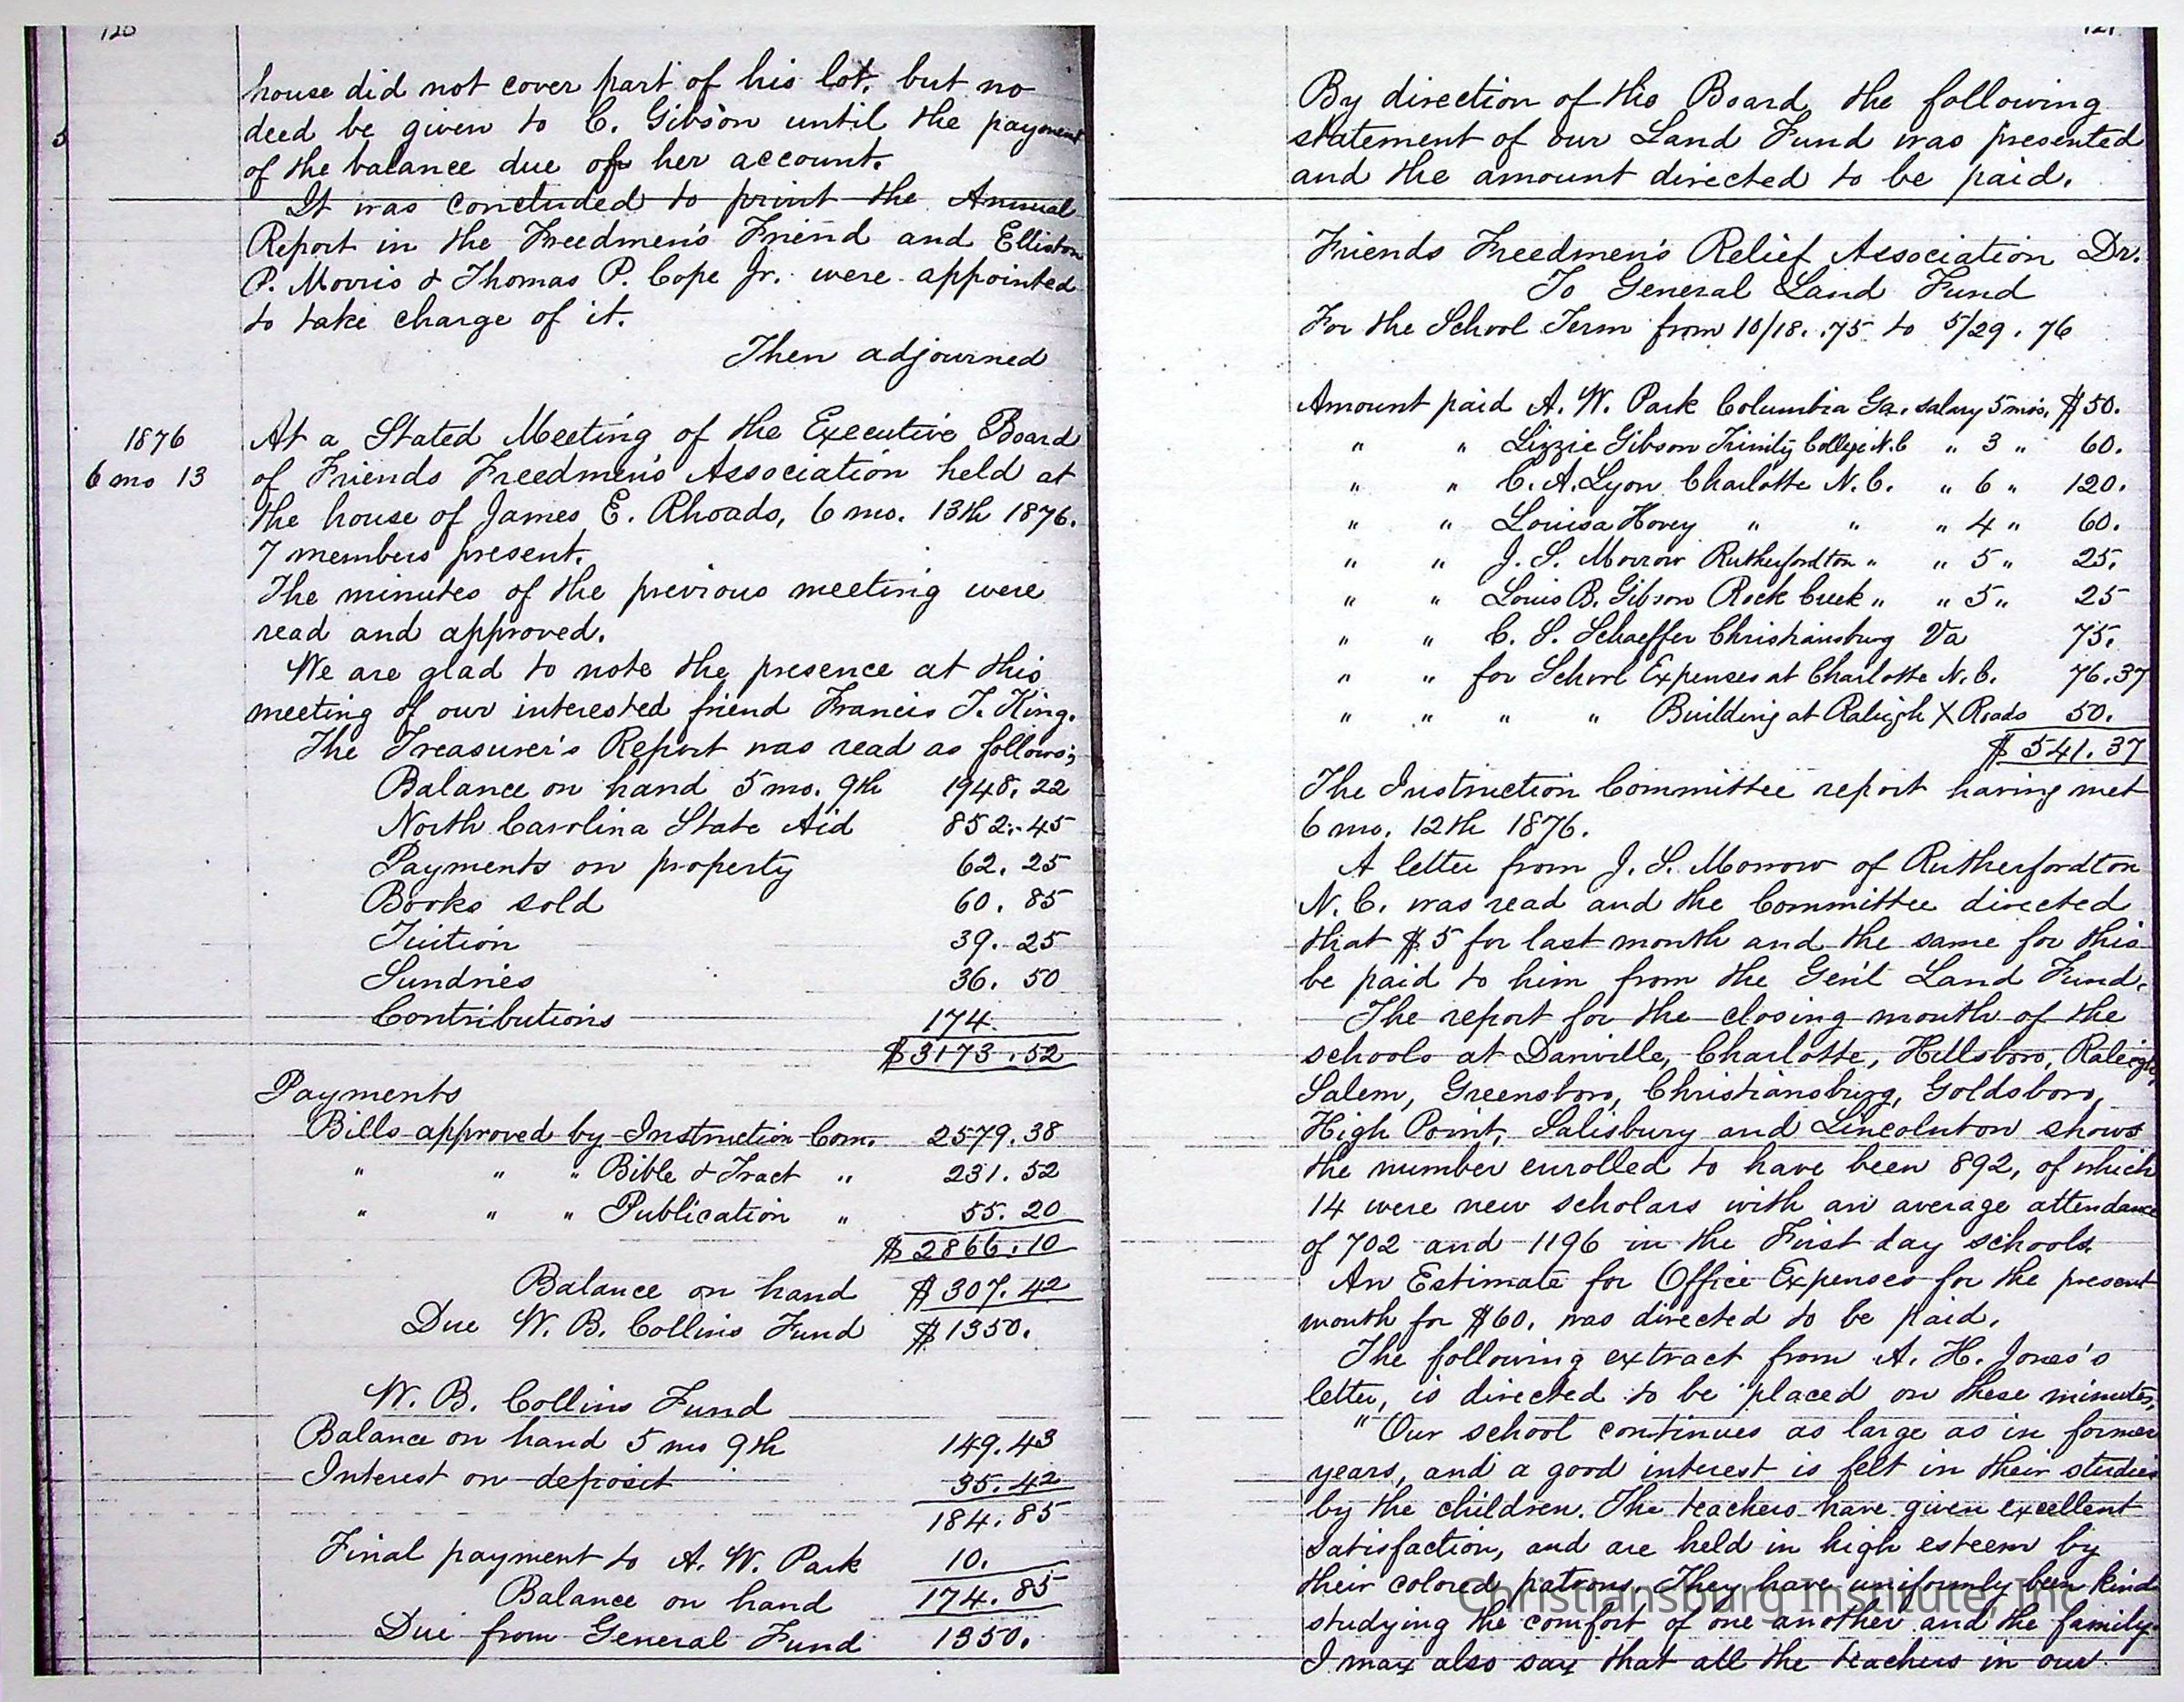 120
house did not cover part of his lot, but no
deed be given to C. Gibson until the payment
of the balance due on her account.
It was concluded to print the Annual
Report in the Freedmen's Friend and Elliston
P. Morris & Thomas P. Cope Jr. were appointed
to take charge of it.
Then adjourned
1876
6 mo 13
At a Stated Meeting of the Executive Board
of Friends Freedmen's Association held at
the house of James E. Rhoads, 6 mo. 13th 1876.
7 members present.
The minutes of the previous meeting were
read and approved.
We are glad to note the presence at this
meeting of our interested friend Francis T. King.
The Treasurer's Report was read as follows;
Balance on hand 5 mo. 9th 1948.22
North Carolina State Aid 852.45
Payments on property 62.25
Books sold 60.85
Tuition 39.25
Sundries 36.50
Contributions 174.
$3173.52
Payments
Bills approved by Instruction Com. 2579.38
" " " Bible & Tract " 231.52
" " " Publication " 55.20
$2866.10
Balance on hand $307.42
Due W. B. Collins Fund $1350.
W. B. Collins Fund
Balance on hand 5 mo 9th 149.43
Interest on deposit 35.42
184.85
Final payment to A. W. Park 10.
Balance on hand 174.85
Due from General Fund 1350.
121
By direction of this Board, the following
statement of our Land Fund was presented
and the amount directed to be paid.
Friends Freedmen's Relief Association Dr.
To General Land Fund
For the School Term from 10/18. 75 to 5/29. 76
Amount paid A. W. Park Columbia Ga. salary 5 mos. $50.
" " Lizzie Gibson Trinity College N.C " 3 " 60.
" " C. A. Lyon Charlotte N. C. " 6 " 120.
" " Louisa Hovey " " " 4 " 60.
" " J. S. Morrow Rutherfordton " " 5 " 25.
" " Louis B. Gibson Rock Creek " " 5 " 25
" " C. S. Schaeffer Christiansburg Va 75.
" " for School Expenses at Charlotte N. C. 76.37
" " " " Building at Raleigh X Roads 50.
$541.37
The Instruction Committee report having met
6 mo. 12th 1876.
A letter from J. S. Morrow of Rutherfordton
N. C. was read and the Committee directed
that $5 for last month and the same for this
be paid to him from the Gen'l Land Fund.
The report for the closing month of the
schools at Danville, Charlotte, Hillsboro, Raleigh,
Salem, Greensboro, Christiansburg, Goldsboro,
High Point, Salisbury and Lincolnton shows
the number enrolled to have been 892, of which
14 were new scholars with an average attendance
of 702 and 1196 in the First day schools.
An Estimate for Office Expenses for the present
month for $60. was directed to be paid.
The following extract from A. H. Jones's
letter, is directed to be placed on these minutes,
"Our school continues as large as in former
years, and a good interest is felt in their studies
by the children. The teachers have given excellent
satisfaction, and are held in high esteem by
their colored patrons. They have uniformly been kind
studying the comfort of one another and the family.
I may also say that all the teachers in our
Christiansburg Institute, Inc